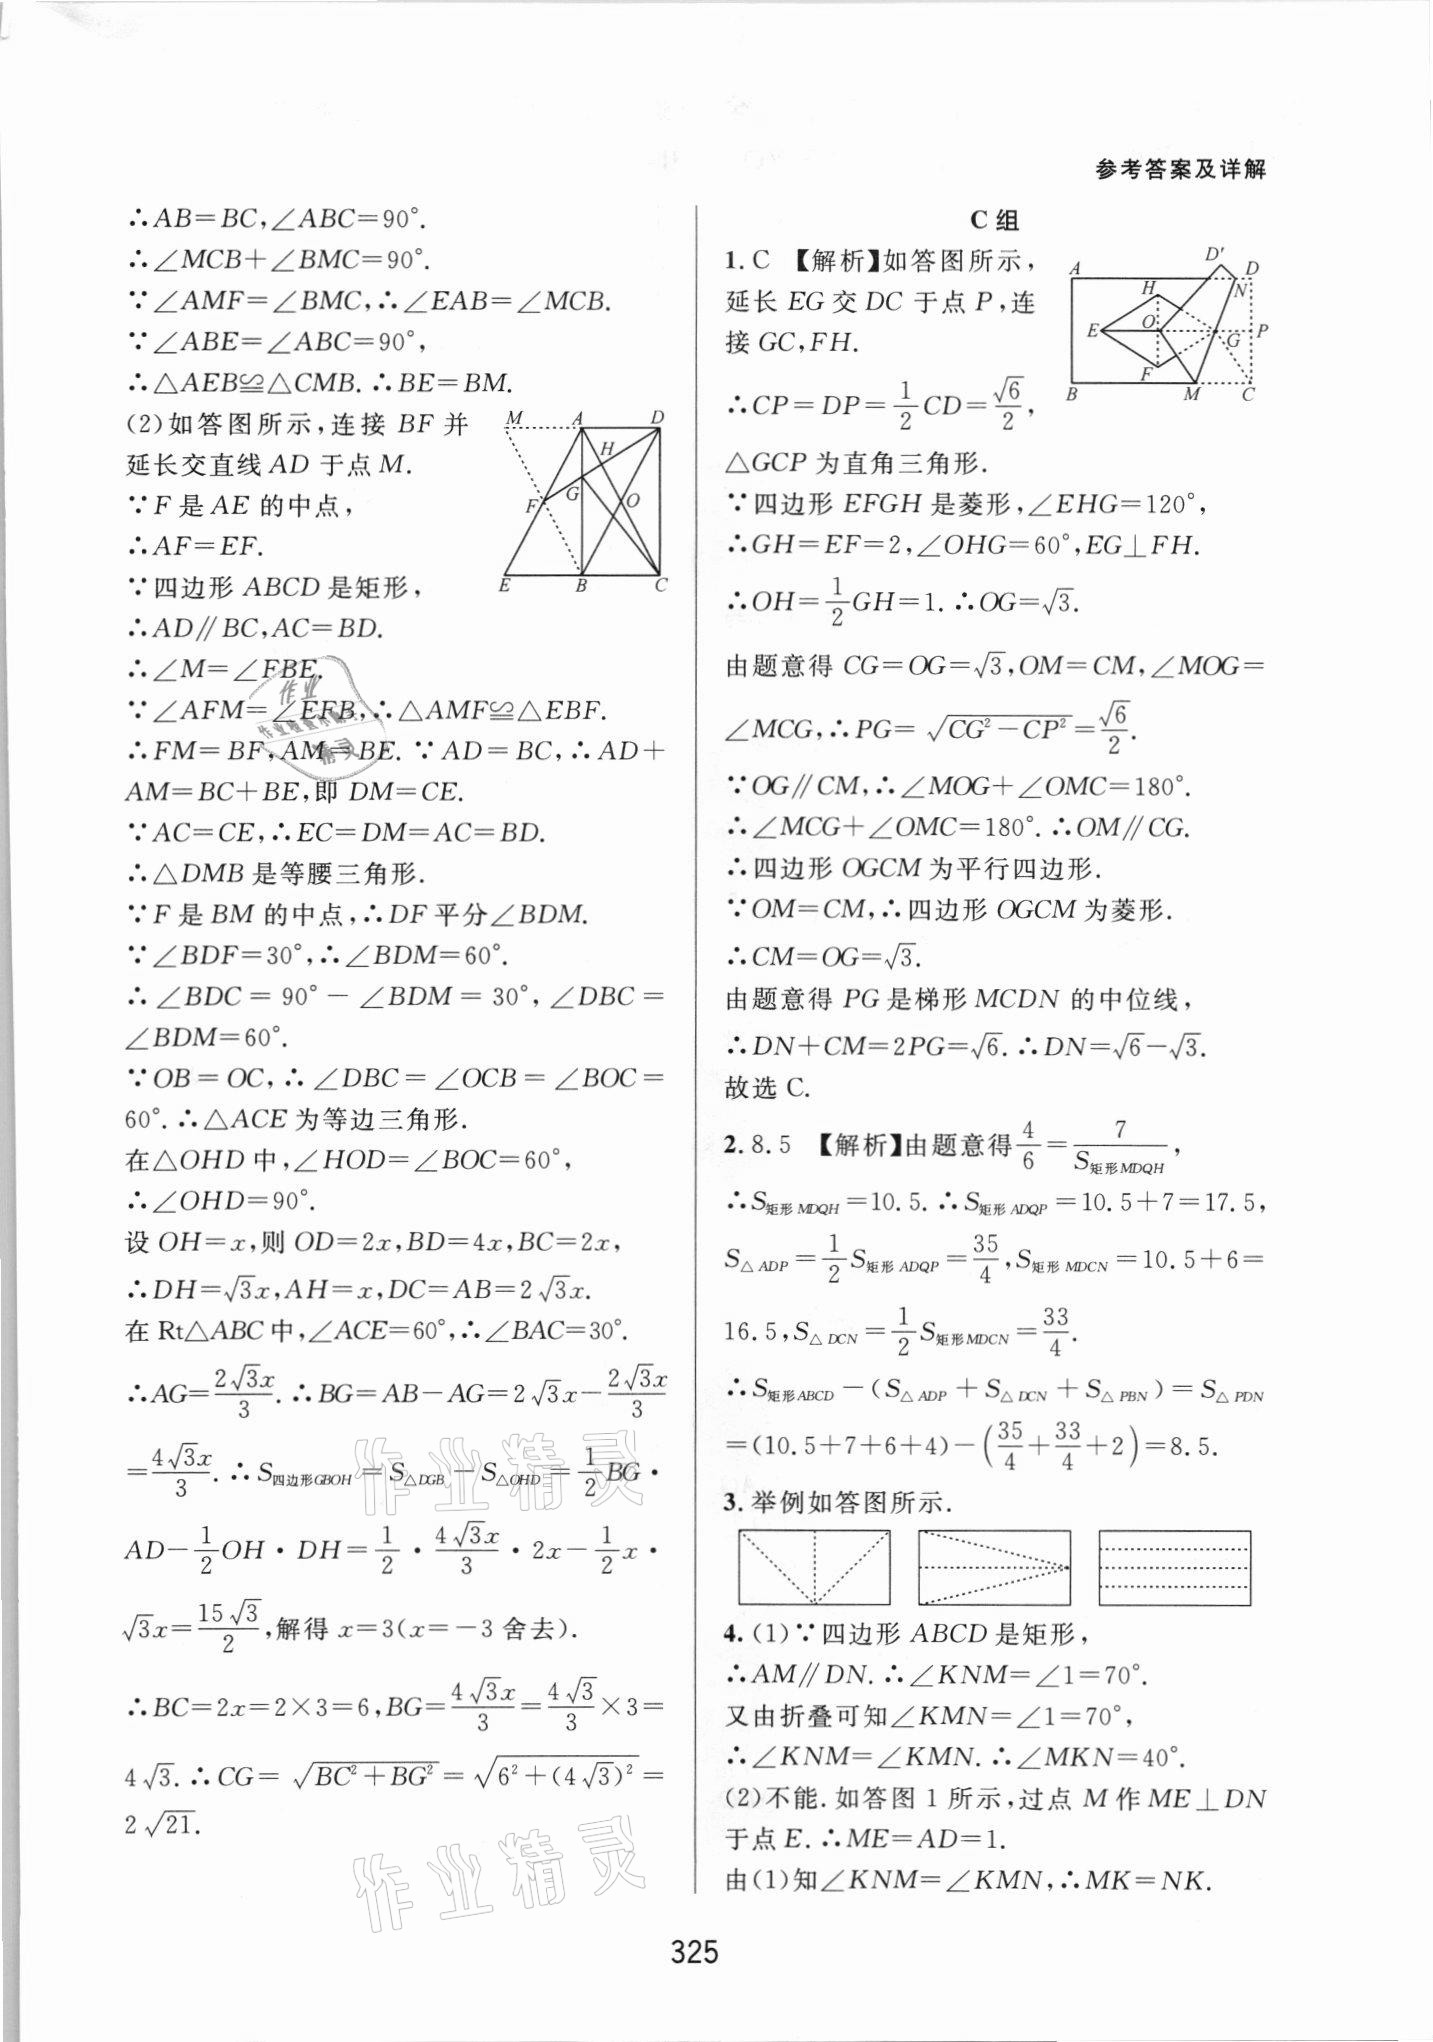 参考答案及详解
∴AB=BC,∠ABC=90°.
∴∠MCB+∠BMC=90°.
∵∠AMF=∠BMC,∴∠EAB=∠MCB.
∵∠ABE=∠ABC=90°,
∴△AEB≌△CMB.∴BE=BM.
(2)如答图所示,连接 BF 并
延长交直线 AD 于点 M.
∵F 是 AE 的中点,
∴AF=EF.
∵四边形 ABCD 是矩形,
∴AD∥BC,AC=BD.
∴∠M=∠FBE.
∵∠AFM=∠EFB,∴△AMF≌△EBF.
∴FM=BF,AM=BE.∵AD=BC,∴AD+
AM=BC+BE,即 DM=CE.
∵AC=CE,∴EC=DM=AC=BD.
∴△DMB 是等腰三角形.
∵F 是 BM 的中点,∴DF 平分∠BDM.
∵∠BDF=30°,∴∠BDM=60°.
∴∠BDC=90°-∠BDM=30°,∠DBC=
∠BDM=60°.
∵OB=OC,∴∠DBC=∠OCB=∠BOC=
60°.∴△ACE 为等边三角形.
在△OHD 中,∠HOD=∠BOC=60°,
∴∠OHD=90°.
设 OH=x,则 OD=2x,BD=4x,BC=2x,
∴DH=√3x,AH=x,DC=AB=2√3x.
在 Rt△ABC 中,∠ACE=60°,∴∠BAC=30°.
∴AG=2√3x/3.∴BG=AB-AG=2√3x-2√3x/3
=4√3x/3.∴S四边形GBOH=S△DGB-S△OHD=1/2BG·
AD-1/2OH·DH=1/2·4√3x/3·2x-1/2x·
√3x=15√3/2,解得 x=3(x=-3 舍去).
∴BC=2x=2×3=6,BG=4√3x/3=4√3/3×3=
4√3.∴CG=√(BC²+BG²)=√(6²+(4√3)²)=
2√21.
M A D
H
G
F O
E B C
C 组
1.C 【解析】如答图所示,
延长 EG 交 DC 于点 P,连
接 GC,FH.
∴CP=DP=1/2CD=√6/2,
△GCP 为直角三角形.
∵四边形 EFGH 是菱形,∠EHG=120°,
∴GH=EF=2,∠OHG=60°,EG⊥FH.
∴OH=1/2GH=1.∴OG=√3.
由题意得 CG=OG=√3,OM=CM,∠MOG=
∠MCG,∴PG=√(CG²-CP²)=√6/2.
∵OG∥CM,∴∠MOG+∠OMC=180°.
∴∠MCG+∠OMC=180°.∴OM∥CG.
∴四边形 OGCM 为平行四边形.
∵OM=CM,∴四边形 OGCM 为菱形.
∴CM=OG=√3.
由题意得 PG 是梯形 MCDN 的中位线,
∴DN+CM=2PG=√6.∴DN=√6-√3.
故选 C.
D′
A D
H N
E O G P
F
B M C
2.8.5 【解析】由题意得4/6=7/S矩形MDQH,
∴S矩形MDQH=10.5.∴S矩形ADQP=10.5+7=17.5,
S△ADP=1/2S矩形ADQP=35/4,S矩形MDCN=10.5+6=
16.5,S△DCN=1/2S矩形MDCN=33/4.
∴S矩形ABCD-(S△ADP+S△DCN+S△PBN)=S△PDN
=(10.5+7+6+4)-(35/4+33/4+2)=8.5.
3.举例如答图所示.
4.(1)∵四边形 ABCD 是矩形,
∴AM∥DN.∴∠KNM=∠1=70°.
又由折叠可知∠KMN=∠1=70°,
∴∠KNM=∠KMN.∴∠MKN=40°.
(2)不能.如答图 1 所示,过点 M 作 ME⊥DN
于点 E.∴ME=AD=1.
由(1)知∠KNM=∠KMN,∴MK=NK.
作业精灵
作业精灵
325